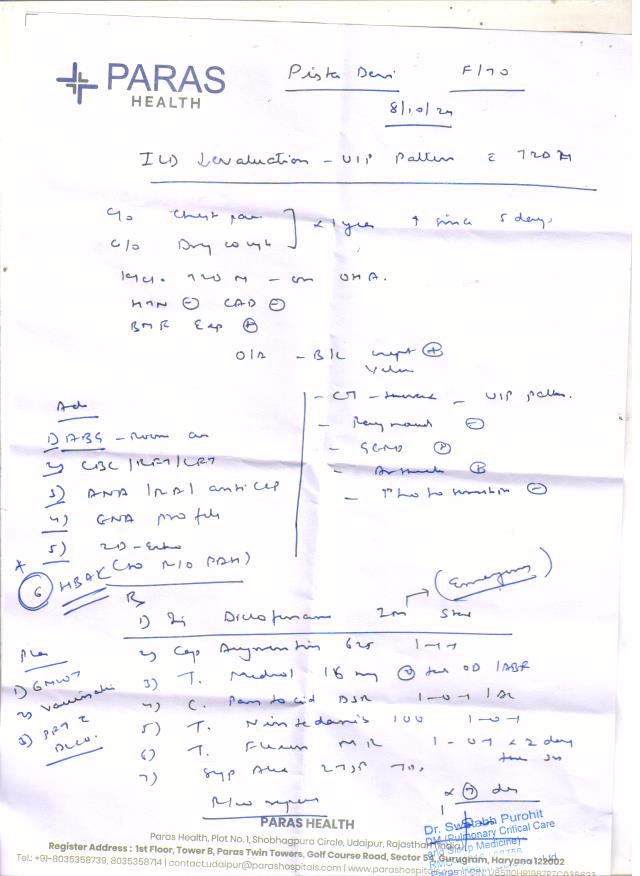 PARAS
HEALTH
Pista Devi F/70
8/10/24
ILD evaluation - UIP Pattern T2DM
C/o Chest pain
C/o Dry cough
x 1 year ↑ since 5 days
T2DM - on OHA.
HTN ⊖ CAD ⊖
BMF Exp ⊕
O/E - B/L crept ⊕
Velcro
- CT - - UIP Patter.
- Raynauds ⊖
- GERD
- Arthritis
- Photosensitive ⊖
Adv
1) ABG - Room air
2) CBC /RFT/LFT
3) ANA /RA/ anti CCP
4) ENA profile
5) 2D-Echo
(to R/o PAH)
* 6 HBA1C
Rx
1) Inj Diclofenac 2ml Stat
(Emergency)
2) Cap Augmentin 625 1-1-1
3) T. Medrol 16 mg OD 1ABF
4) C. Pantocid DSR 1-0-1
5) T. Nintedanib 100 1-0-1
6) T. MR 1-0-1 x 2 day
7) Syp 2TSF TDS
Plan
1) 6MWT
2) Vaccination
3) PFT
DLCO.
R/w reports
x 7 days
Dr. Swatabh Purohit
DM (Pulmonary Critical Care
and Sleep Medicine)
PARAS HEALTH
Paras Health, Plot No. 1, Shobhagpura Circle, Udaipur, Rajasthan (India)
Register Address : 1st Floor, Tower B, Paras Twin Towers, Golf Course Road, Sector 54, Gurugram, Haryana 122002
Tel.: +91-8035358739, 8035358714 | contact.udaipur@parashospitals.com | www.parashospitals.com